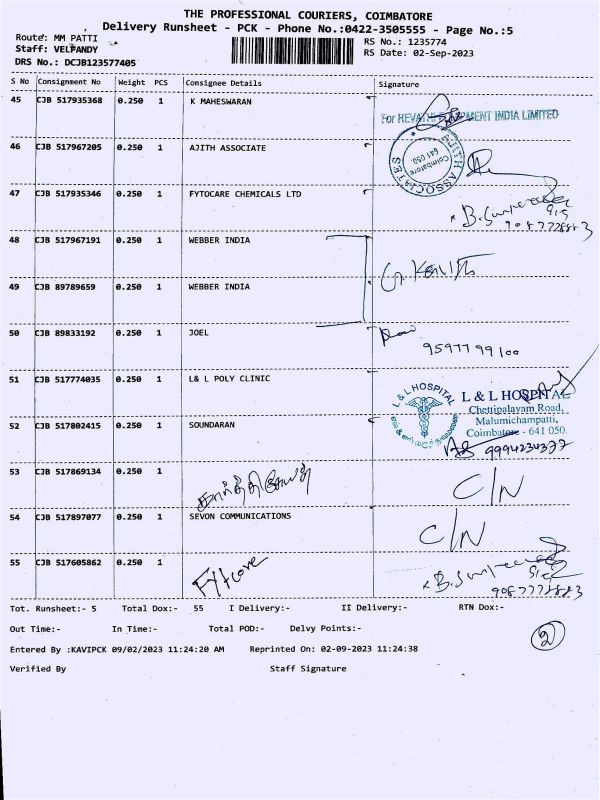 THE PROFESSIONAL COURIERS, COIMBATORE
Delivery Runsheet - PCK - Phone No.:0422-3505555 - Page No.:5
Route: MM PATTI
RS No.: 1235774
Staff: VELPANDY
RS Date: 02-Sep-2023
DRS No.: DCJB123577405
S No Consignment No Weight PCS Consignee Details Signature
45 CJB 517935368 0.250 1 K MAHESWARAN
For REVATHI EQUIPMENT INDIA LIMITED
46 CJB 517967205 0.250 1 AJITH ASSOCIATE
AJITH ASSOCIATES
Coimbatore
641 050.
47 CJB 517935346 0.250 1 FYTOCARE CHEMICALS LTD
9087778883
48 CJB 517967191 0.250 1 WEBBER INDIA
49 CJB 89789659 0.250 1 WEBBER INDIA
50 CJB 89833192 0.250 1 JOEL
9597799100
51 CJB 517774035 0.250 1 L& L POLY CLINIC
L & L HOSPITAL
L & L HOSPITAL
Chettipalayam Road,
Malumichampatti,
Coimbatore - 641 050.
52 CJB 517802415 0.250 1 SOUNDARAN
9994234377
53 CJB 517869134 0.250 1
C/N
54 CJB 517897077 0.250 1 SEVON COMMUNICATIONS
C/N
55 CJB 517605862 0.250 1 Fytcore
9087778883
Tot. Runsheet:- 5 Total Dox:- 55 I Delivery:- II Delivery:- RTN Dox:-
Out Time:- In Time:- Total POD:- Delvy Points:-
2
Entered By :KAVIPCK 09/02/2023 11:24:20 AM Reprinted On: 02-09-2023 11:24:38
Verified By Staff Signature